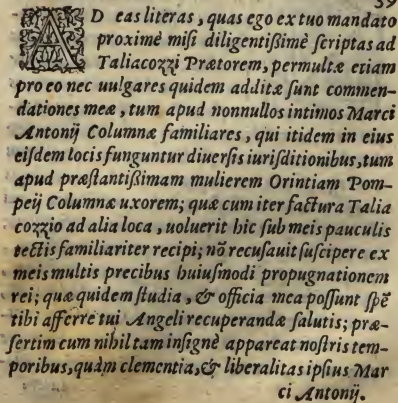 39
AD eas literas, quas ego ex tuo mandato
proximè misi diligentißimè scriptas ad
Taliacozzi Prætorem, permultæ etiam
pro eo nec uulgares quidem additæ sunt commen-
dationes meæ, tum apud nonnullos intimos Marci
Antonij Columnæ familiares, qui itidem in eius
eisdem locis funguntur diuersis iurisditionibus, tum
apud præstantißimam mulierem Orintiam Pom-
peij Columnæ uxorem; quæ cum iter factura Talia
cozzio ad alia loca, uoluerit hic sub meis pauculis
tectis familiariter recipi; nõ recusauit suscipere ex
meis multis precibus huiusmodi propugnationem
rei; quæ quidem studia, & officia mea possunt spẽ
tibi afferre tui Angeli recuperandæ salutis; præ-
sertim cum nihil tam insignè appareat nostris tem-
poribus, quàm clementia, & liberalitas ipsius Mar
ci Antonij.